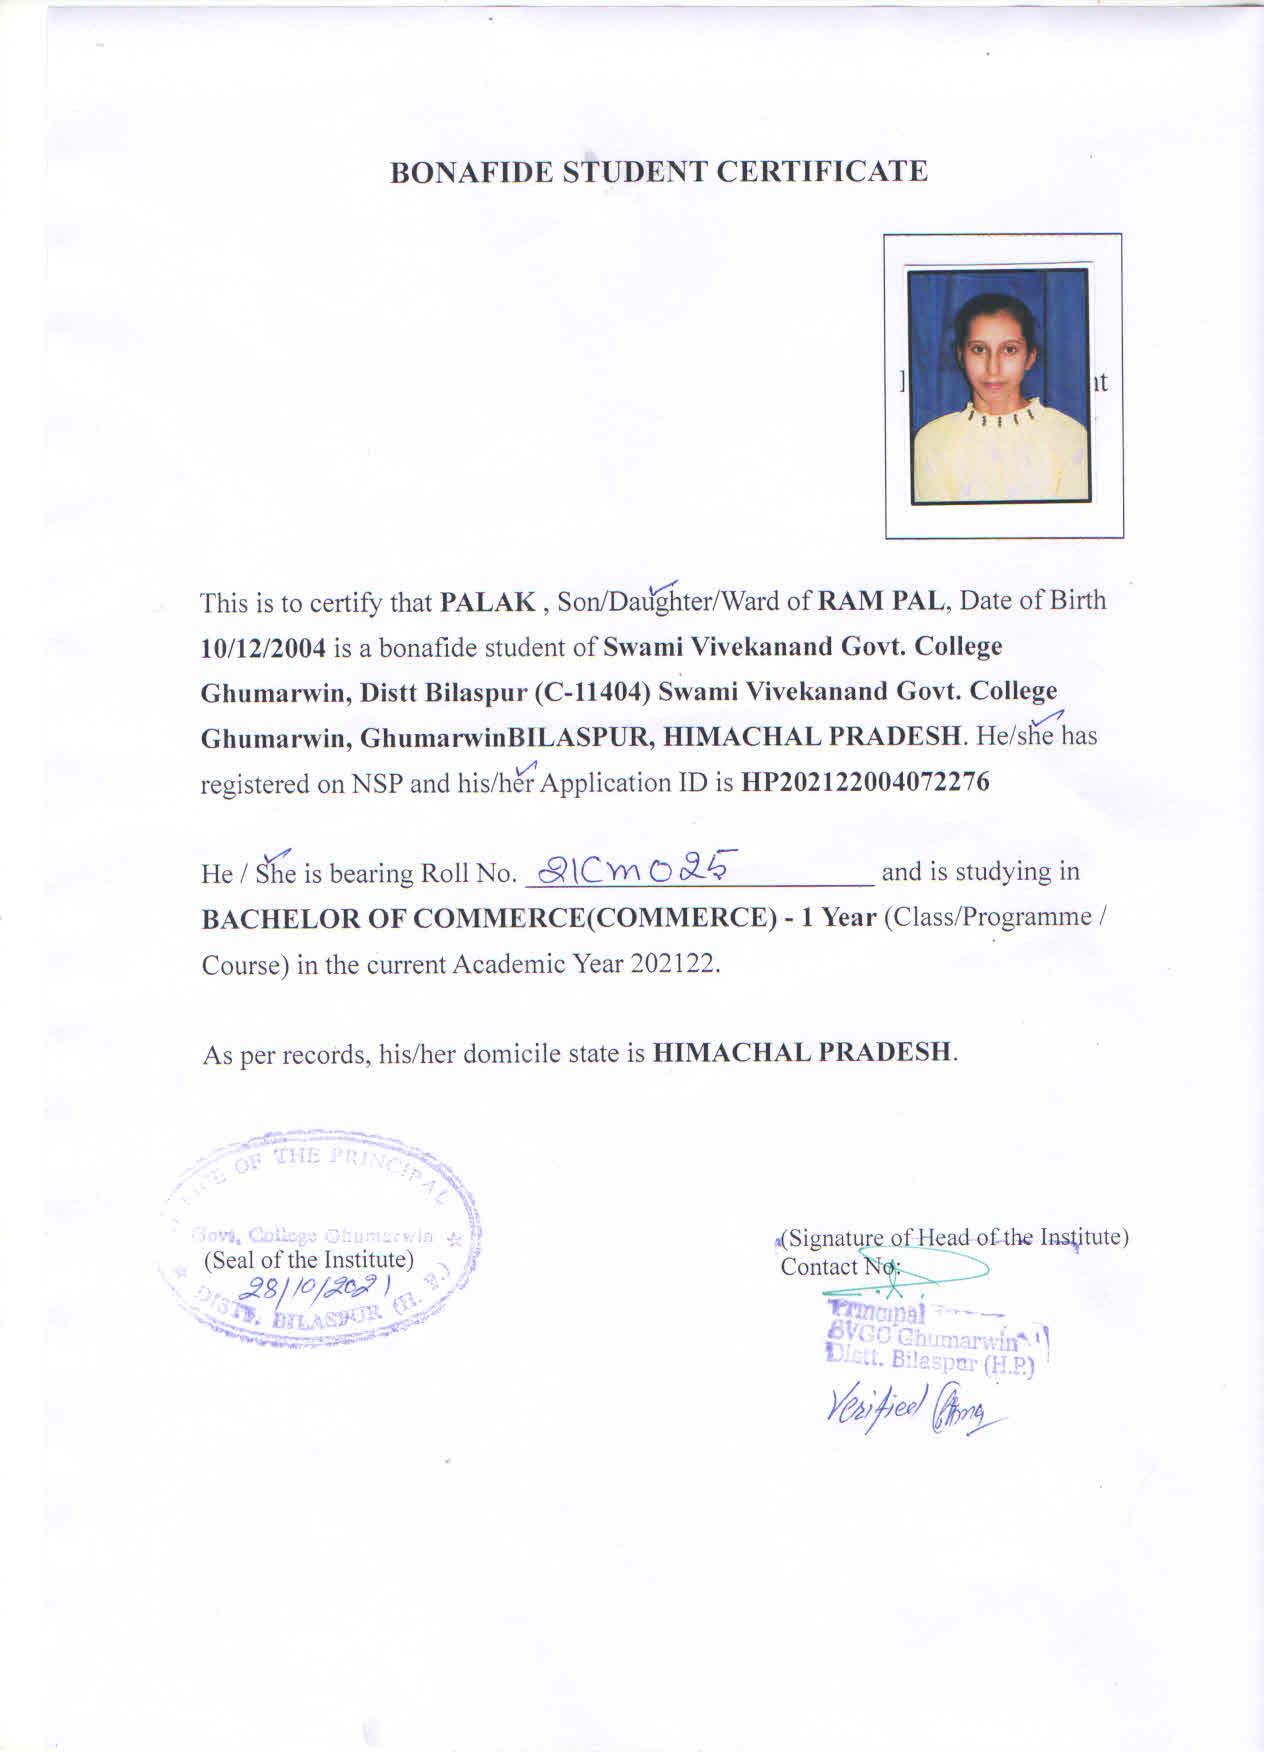 BONAFIDE STUDENT CERTIFICATE
This is to certify that PALAK , Son/Daughter/Ward of RAM PAL, Date of Birth
10/12/2004 is a bonafide student of Swami Vivekanand Govt. College
Ghumarwin, Distt Bilaspur (C-11404) Swami Vivekanand Govt. College
Ghumarwin, GhumarwinBILASPUR, HIMACHAL PRADESH. He/she has
registered on NSP and his/her Application ID is HP202122004072276
He / She is bearing Roll No. 21CM025 and is studying in
BACHELOR OF COMMERCE(COMMERCE) - 1 Year (Class/Programme /
Course) in the current Academic Year 202122.
As per records, his/her domicile state is HIMACHAL PRADESH.
OF THE PRINCIPAL
Govt. College Ghumarwin
(Seal of the Institute)
28/10/2021
DISTT. BILASPUR (H. P.)
(Signature of Head of the Institute)
Contact No:
Principal
SVGC Ghumarwin
Distt. Bilaspur (H.P.)
Verified